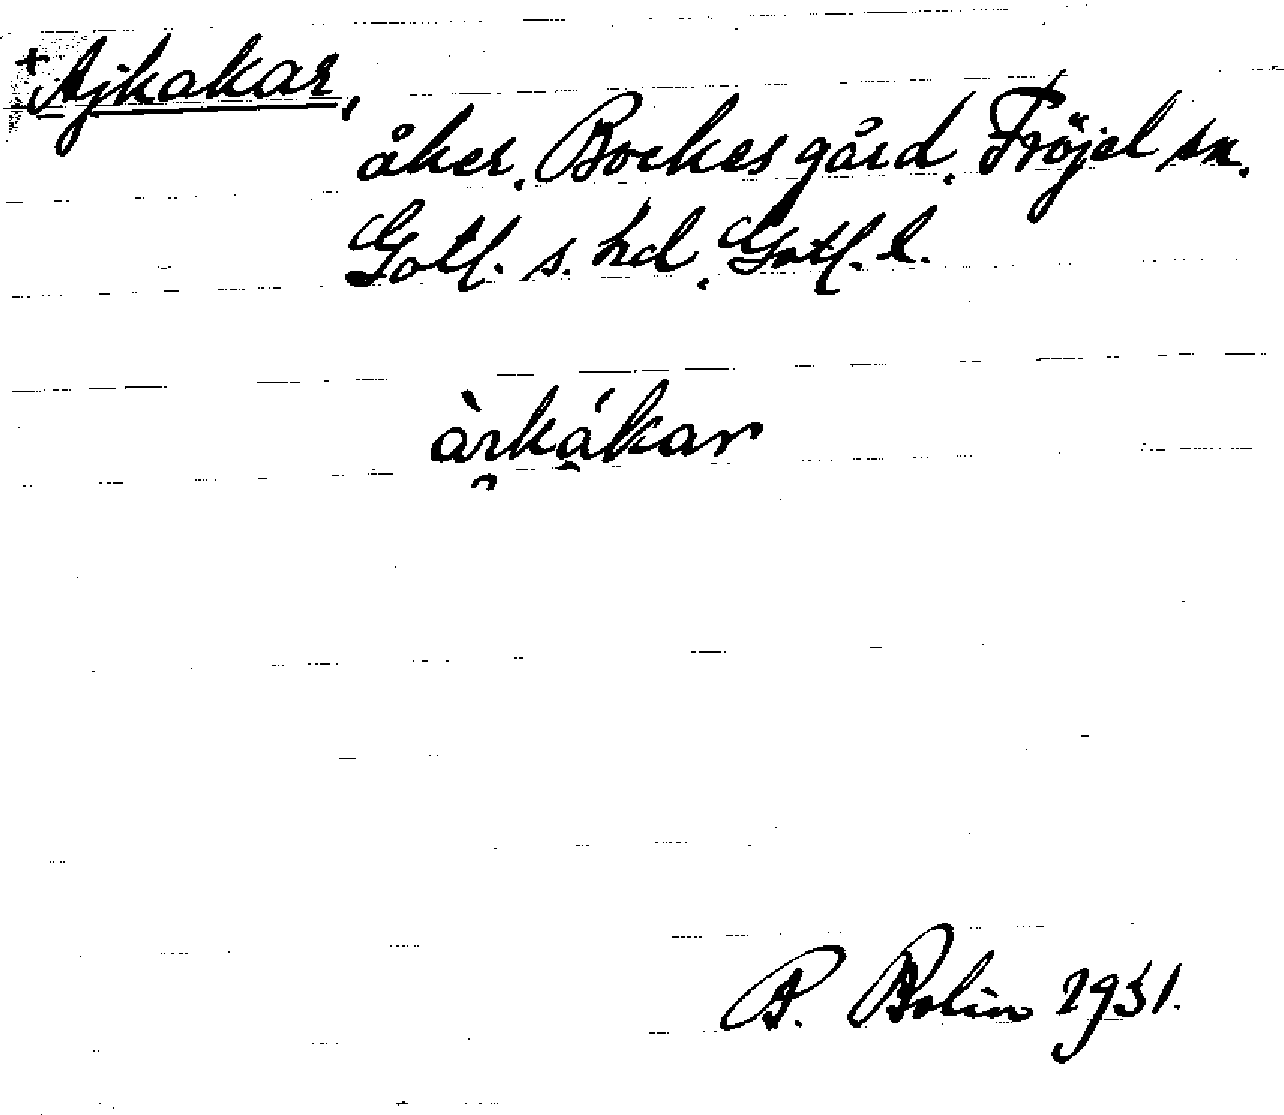 + Ajkakar,
åker, Bockes gård, Fröjel sn.
Gotl. s. hd, Gotl. l.
àɪ̯kákar
B. Bolin 1931.